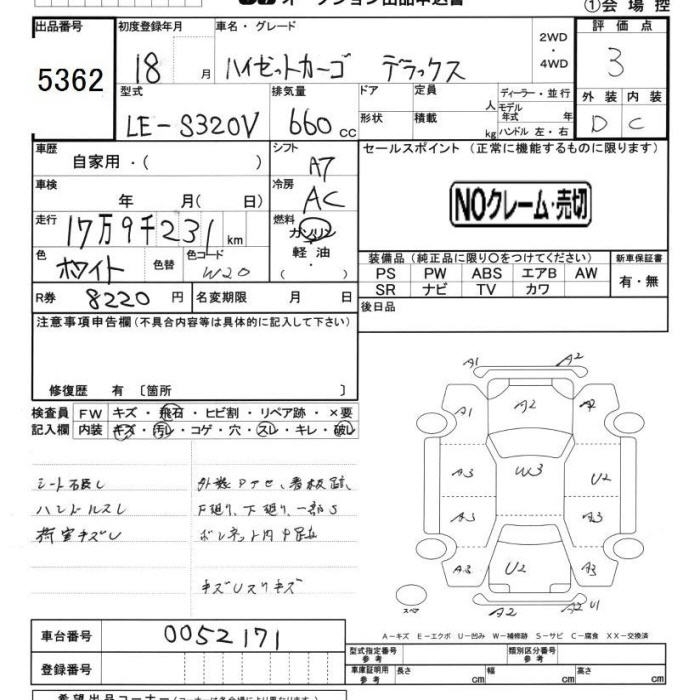 オークション出品申込書
①会場控
出品番号 初度登録年月 車名・グレード 2WD・4WD 評価点
5362 18 月 ハイゼットカーゴ デラックス 3
型式 排気量 ドア 定員 人 ディーラー・並行 外装 内装
LE-S320V 660 cc 形状 積載 kg モデル年式 年式 ハンドル 左・右 D C
車歴 自家用・( ) シフト A7 セールスポイント (正常に機能するものに限ります)
車検 年 月(日) 冷房 AC
NOクレーム・売切
走行 17万9千231 km 燃料 ガソリン・軽油・
色 ホワイト 色替 色コード W20
装備品 (純正品に限り○をつけてください) 新車保証書
PS PW ABS エアB AW 有・無
SR ナビ TV カワ
R券 8220 円 名変期限 月 日 後日品
注意事項申告欄 (不具合内容等は具体的に記入して下さい)
修復歴 有 〔箇所 〕
検査員 FW キズ・飛石・ヒビ割・リペア跡・×要
記入欄 内装 キズ・汚レ・コゲ・穴・スレ・キレ・破レ
シート破レ 外装Pアセ、看板跡、
ハンドルスレ 下廻り、下廻り、一部S
荷室キズU ボンネット内
キズUスリキズ
A1 A2
A1 A2 A2
A3 W3 U2
A3 A3
A3 U2 A3
スペア A2 A2 U1
A-キズ E-エクボ U-凹み W-補修跡 S-サビ C-腐食 XX-交換済
車台番号 0052171
型式指定番号 参考 類別区分番号 参考
登録番号 車庫証明用 参考 長さ cm 幅 cm 高さ cm
希望出品コーナー